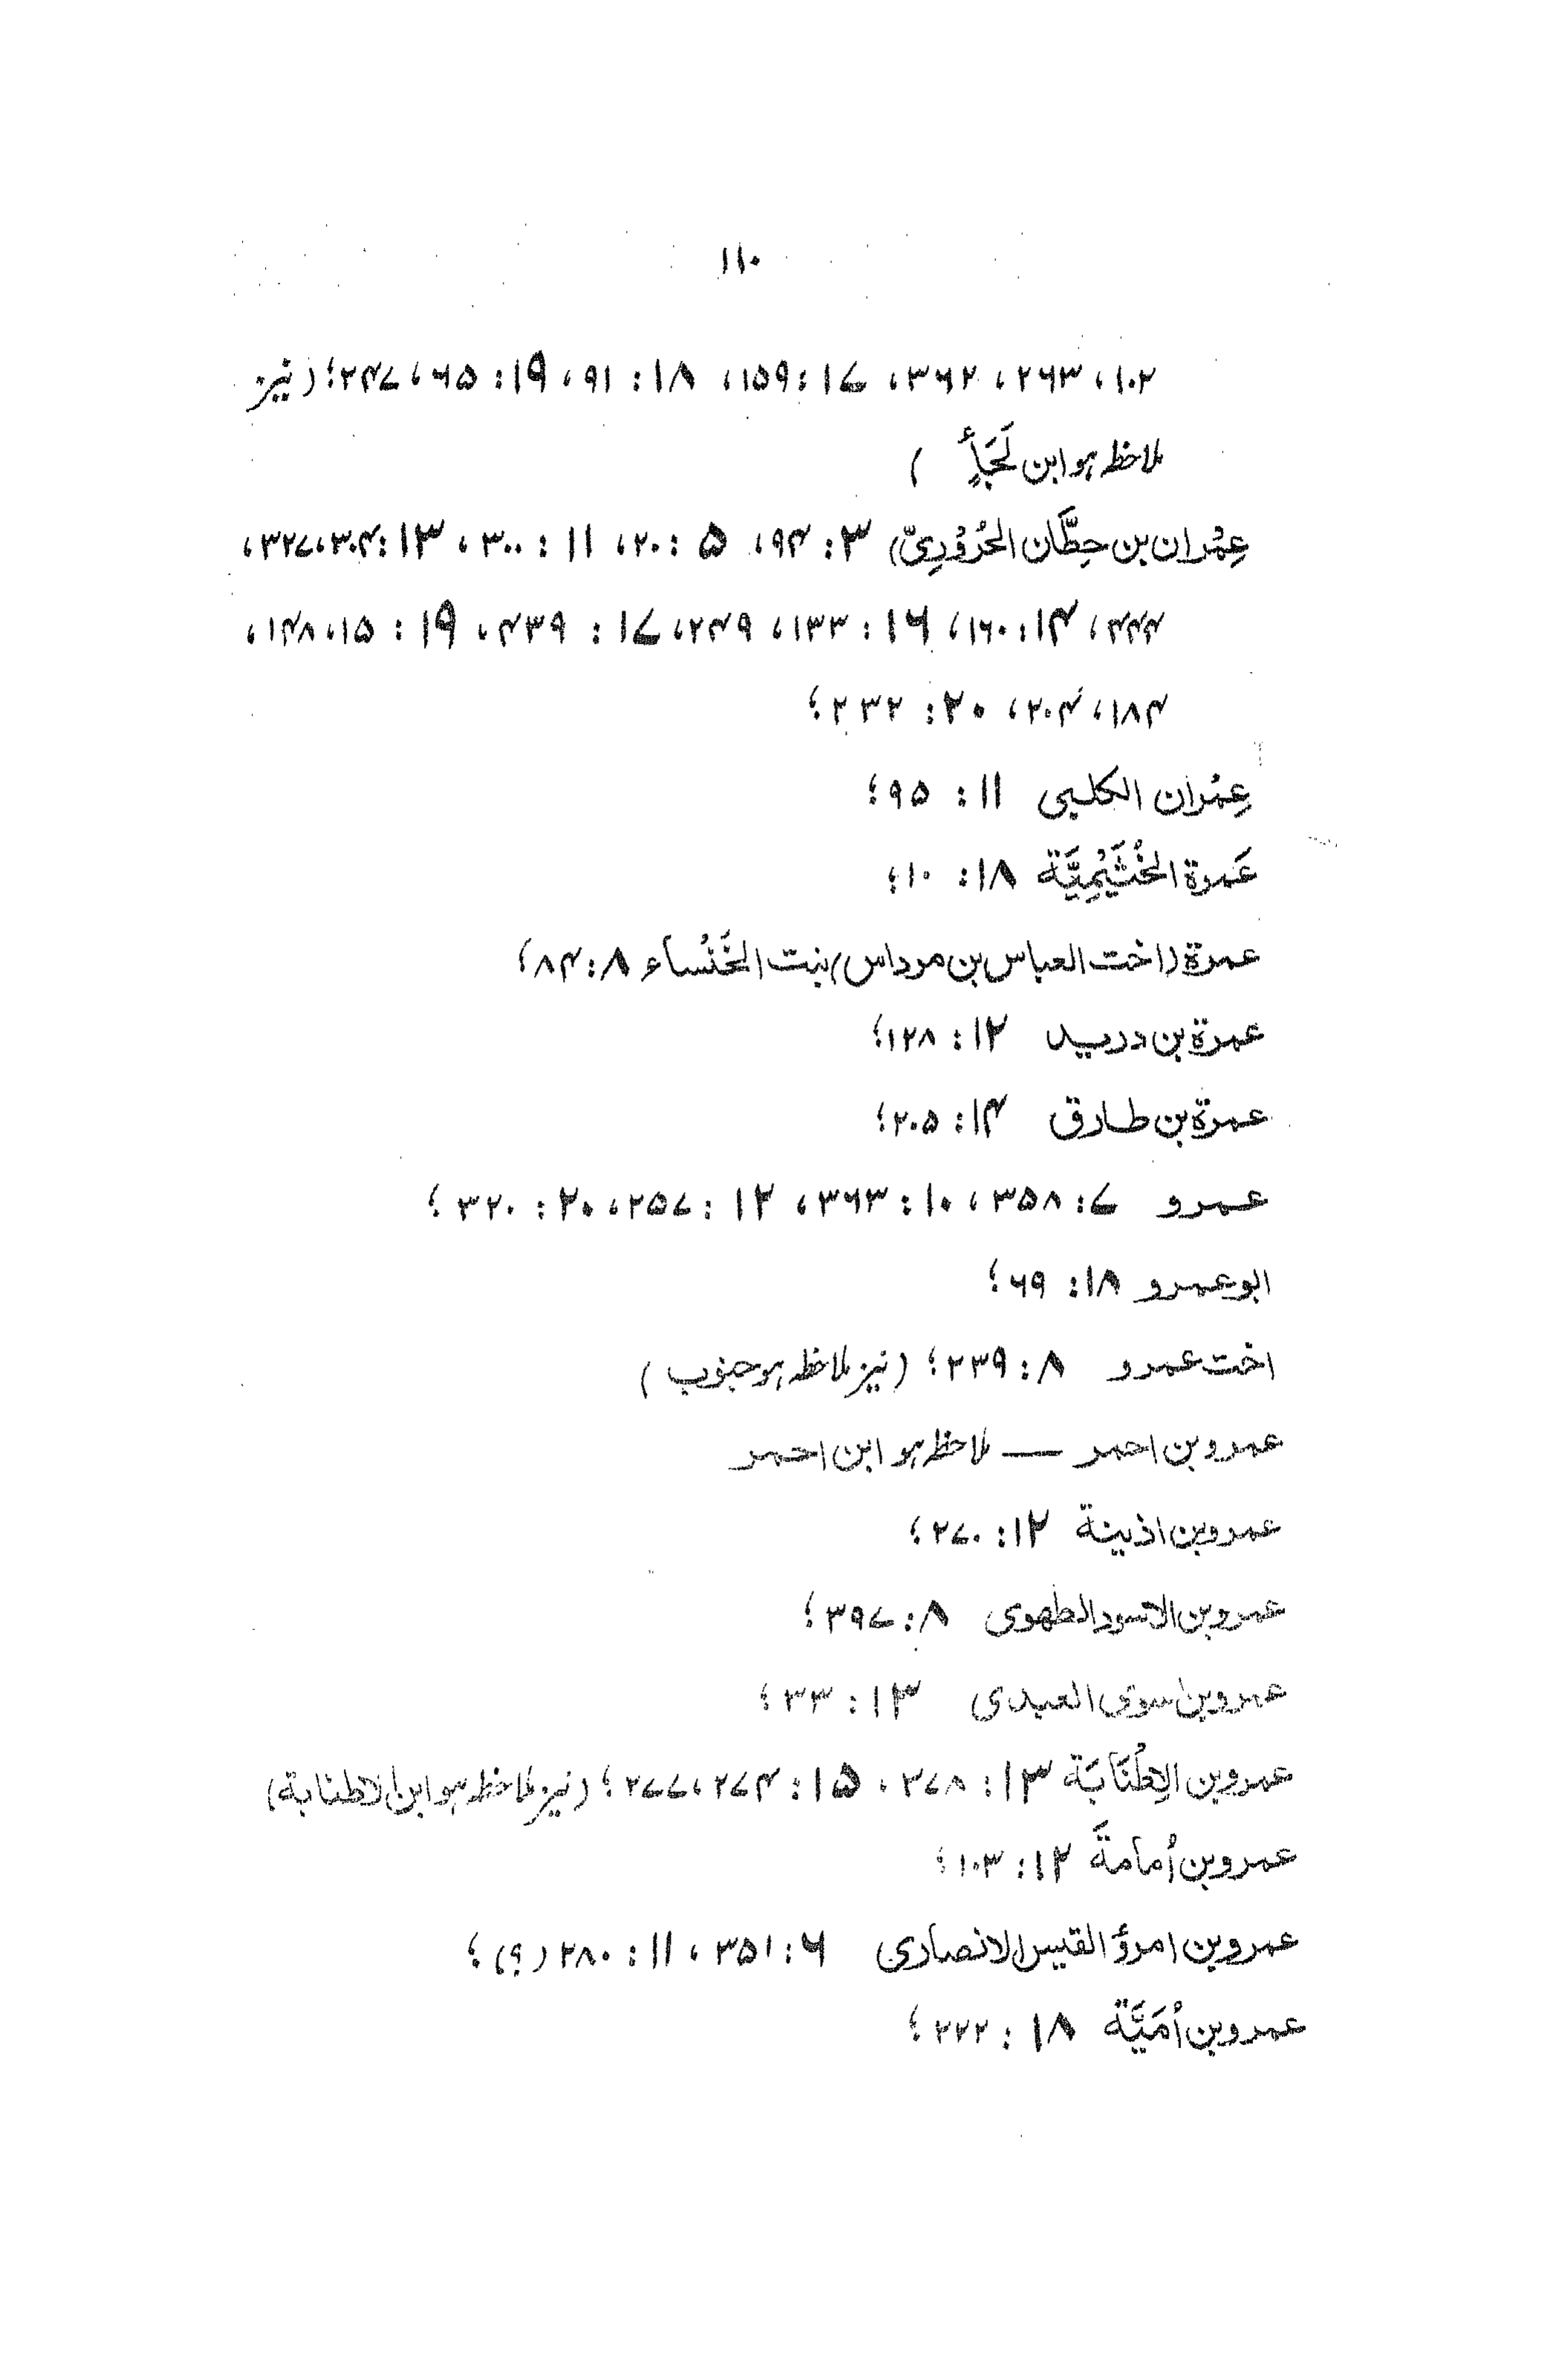 ۱۱۰
۱۰۲، ۲۶۳، ۳۶۲، ۱۷: ۱۵۹، ۱۸: ۹۱، ۱۹: ۶۵، ۲۴۷؛ (نیز
ملاحظہ ہو ابن لَجَأٍ )
عِمْران بن حِطَّان الحُرُوْرِیّ) ۳: ۹۴، ۵: ۲۰، ۱۱: ۳۰۰، ۱۳: ۳۰۴، ۳۲۷،
۴۴۴، ۱۴: ۱۶۰، ۱۶: ۱۳۳، ۲۴۹، ۱۷: ۴۳۹، ۱۹: ۱۵، ۱۴۸،
۱۸۴، ۲۰۴، ۲۰: ۲۳۲؛
عِمْران الکلبی ۱۱: ۹۵؛
عَمرة الخُثَيْمِيَّة ۱۸: ۱۰؛
عمرة (اخت العباس بن مرداس) بنت الخَنْساء ۸: ۸۴؛
عمرة بن درید ۱۲: ۱۲۸؛
عمرة بن طارق ۱۴: ۲۰۵؛
عمرو ۷: ۳۵۸، ۱۰: ۳۶۳، ۱۲: ۲۵۷، ۲۰: ۳۲۰؛
ابو عمرو ۱۸: ۶۹؛
اخت عمرو ۸: ۲۳۹؛ (نیز ملاحظہ ہو جنوب )
عمرو بن احمر — ملاحظہ ہو ابن احمر
عمرو بن اذینة ۱۲: ۲۷۰؛
عمرو بن الاسود الطهوی ۸: ۳۹۷؛
عمرو بن اسوی العبدی ۱۳: ۳۳؛
عمرو بن الاِطْنَابَة ۱۳: ۳۷۸، ۱۵: ۲۷۴، ۲۷۷؛ (نیز ملاحظہ ہو ابن الاطنابة)
عمرو بن أمامةَ ۱۲: ۱۰۳؛
عمرو بن امرؤ القیس الانصاری ۶: ۳۵۱، ۱۱: ۲۸۰ (؟)؛
عمرو بن أمَيَّة ۱۸: ۲۲۲؛